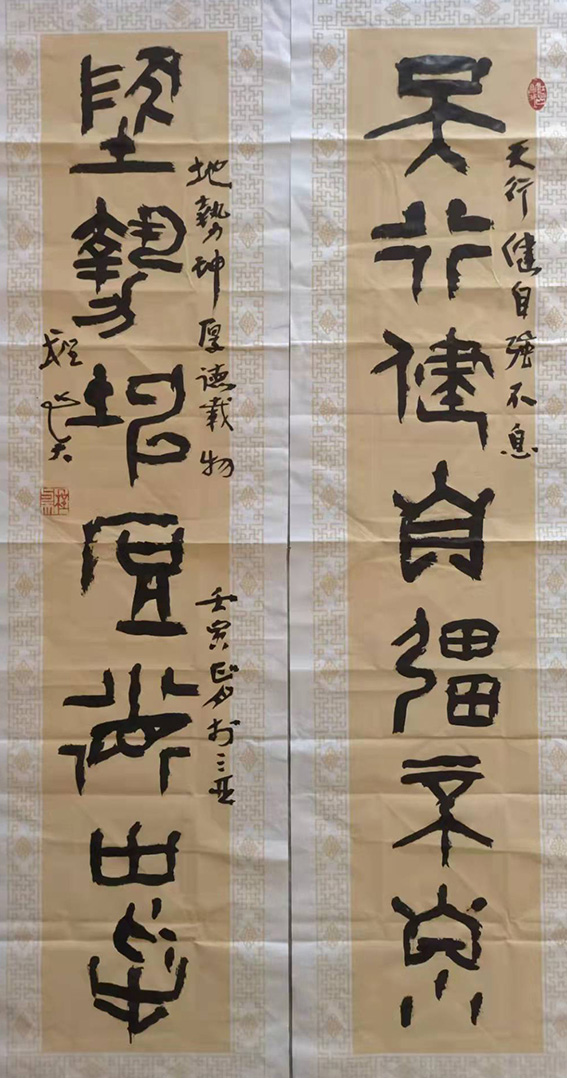 天行健自彊不息
天行健自强不息
墬勢坤厚德載物
地勢坤厚德載物
壬寅 於三亞
程